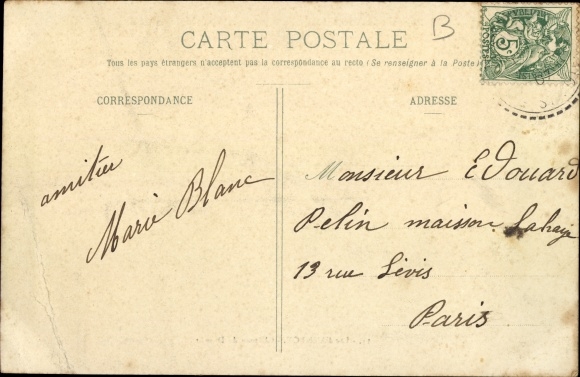 B
CARTE POSTALE
Tous les pays étrangers n'acceptent pas la correspondance au recto (Se renseigner à la Poste)
CORRESPONDANCE
ADRESSE
amitiés
Marie Blanc
Monsieur Edouard
Pelin maison Lahaye
13 rue Lévis
Paris
5c
POSTES